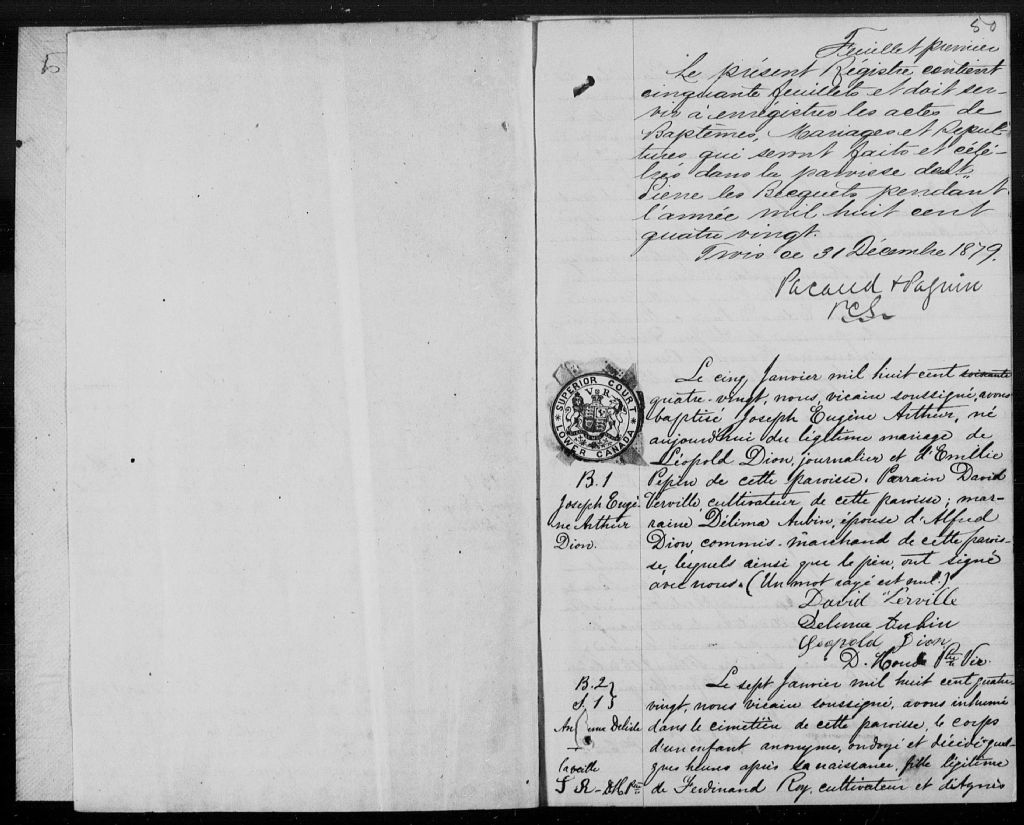 50
Feuillet premier
Le présent Régistre contient
cinquante feuillets et doit ser-
vir à enrégistrer les actes de
Baptêmes, Mariages et Sépul-
tures qui seront faits et célé-
brés dans la paroisse de St
Pierre les Becquets pendant
l'année mil huit cent
quatre vingt.
Trois ce 31 Décembre 1879.
Pacaud & Paquin
P.C.S.
SUPERIOR COURT
V R
LOWER CANADA
B. 1
Joseph Eugè-
ne Arthur
Dion.
Le cinq Janvier mil huit cent soixante
quatre-vingt, nous, vicaire soussigné, avons
baptisé Joseph Eugène Arthur, né
aujourd'hui du légitime mariage de
Léopold Dion, journalier et d'Emilie
Pepin de cette paroisse. Parrain David
Verville cultivateur de cette paroisse; mar-
raine Délima Aubin, épouse d'Alfred
Dion commis-marchand de cette parois-
se, lesquels ainsi que le père, ont signé
avec nous. (Un mot rayé est nul.)
David Verville
Delima Aubin
Leopold Dion
D. Houde Ptre Vic.
B. 2
S. 1
Anonyme
Le sept Janvier mil huit cent quatre-
vingt, nous vicaire soussigné, avons inhumé
dans le cimetière de cette paroisse, le corps
d'un enfant anonyme, ondoyé et décédé quel-
ques heures après sa naissance, fille légitime
de Ferdinand Roy, cultivateur et d'Agnès